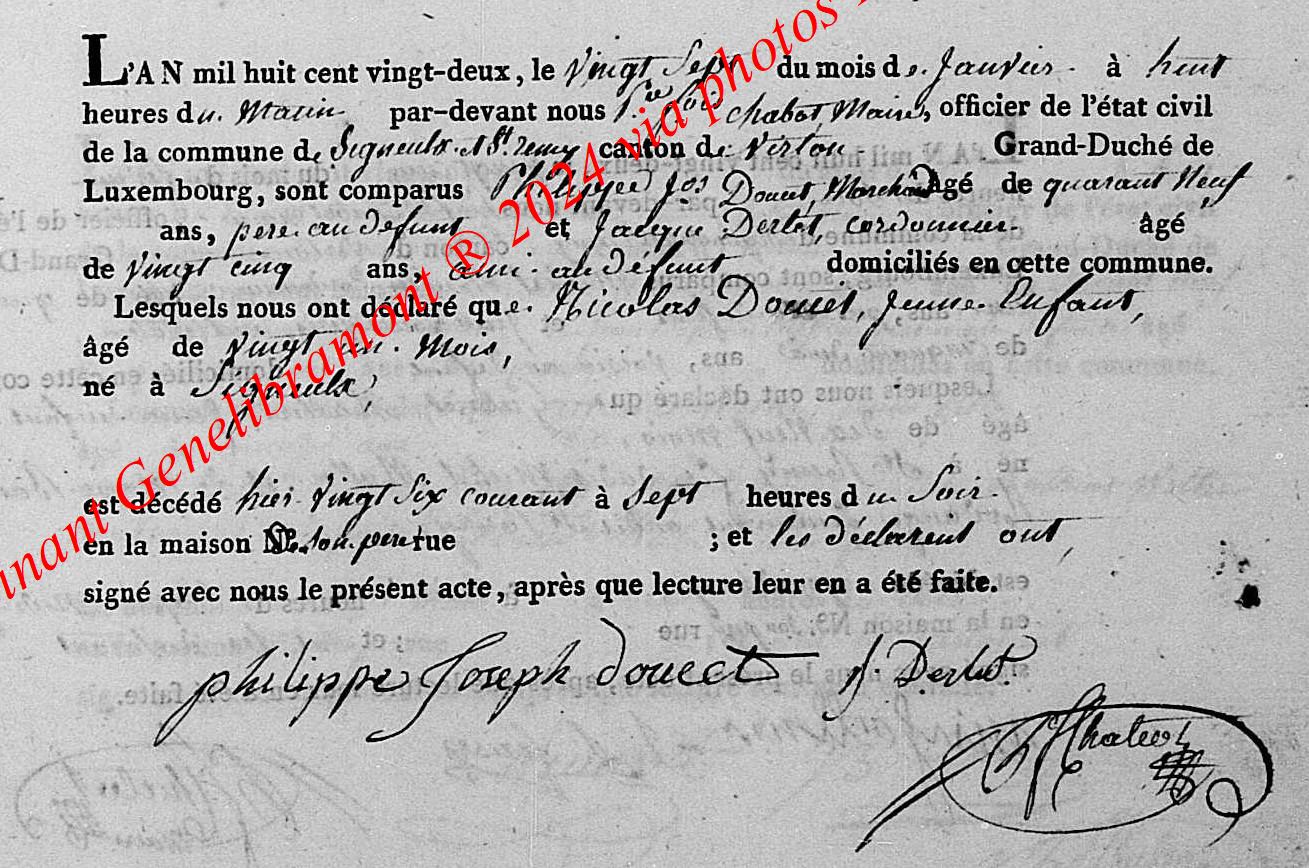 L'AN mil huit cent vingt-deux, le vingt sept du mois de Janvier à huit
heures du Matin par-devant nous Chabot, Maire, officier de l'état civil
de la commune de Signeulx et St remy canton de Virton Grand-Duché de
Luxembourg, sont comparus Philippe Jos Douct, Marchand Agé de quarant Neuf
ans, pere au defunt et Jacque Derlet, cordonnier âgé
de vingt cinq ans, ami au défunt domiciliés en cette commune.
Lesquels nous ont déclaré que Nicolas Douct, jeune Enfant,
âgé de vingt un Mois,
né à Signeulx,
est décédé hier vingt Six courant à Sept heures du Soir
en la maison De son pere rue ; et les déclarent ont,
signé avec nous le présent acte, après que lecture leur en a été faite.
philippe Joseph douect J. Derlet
Genelibramont ® 2024 via photos